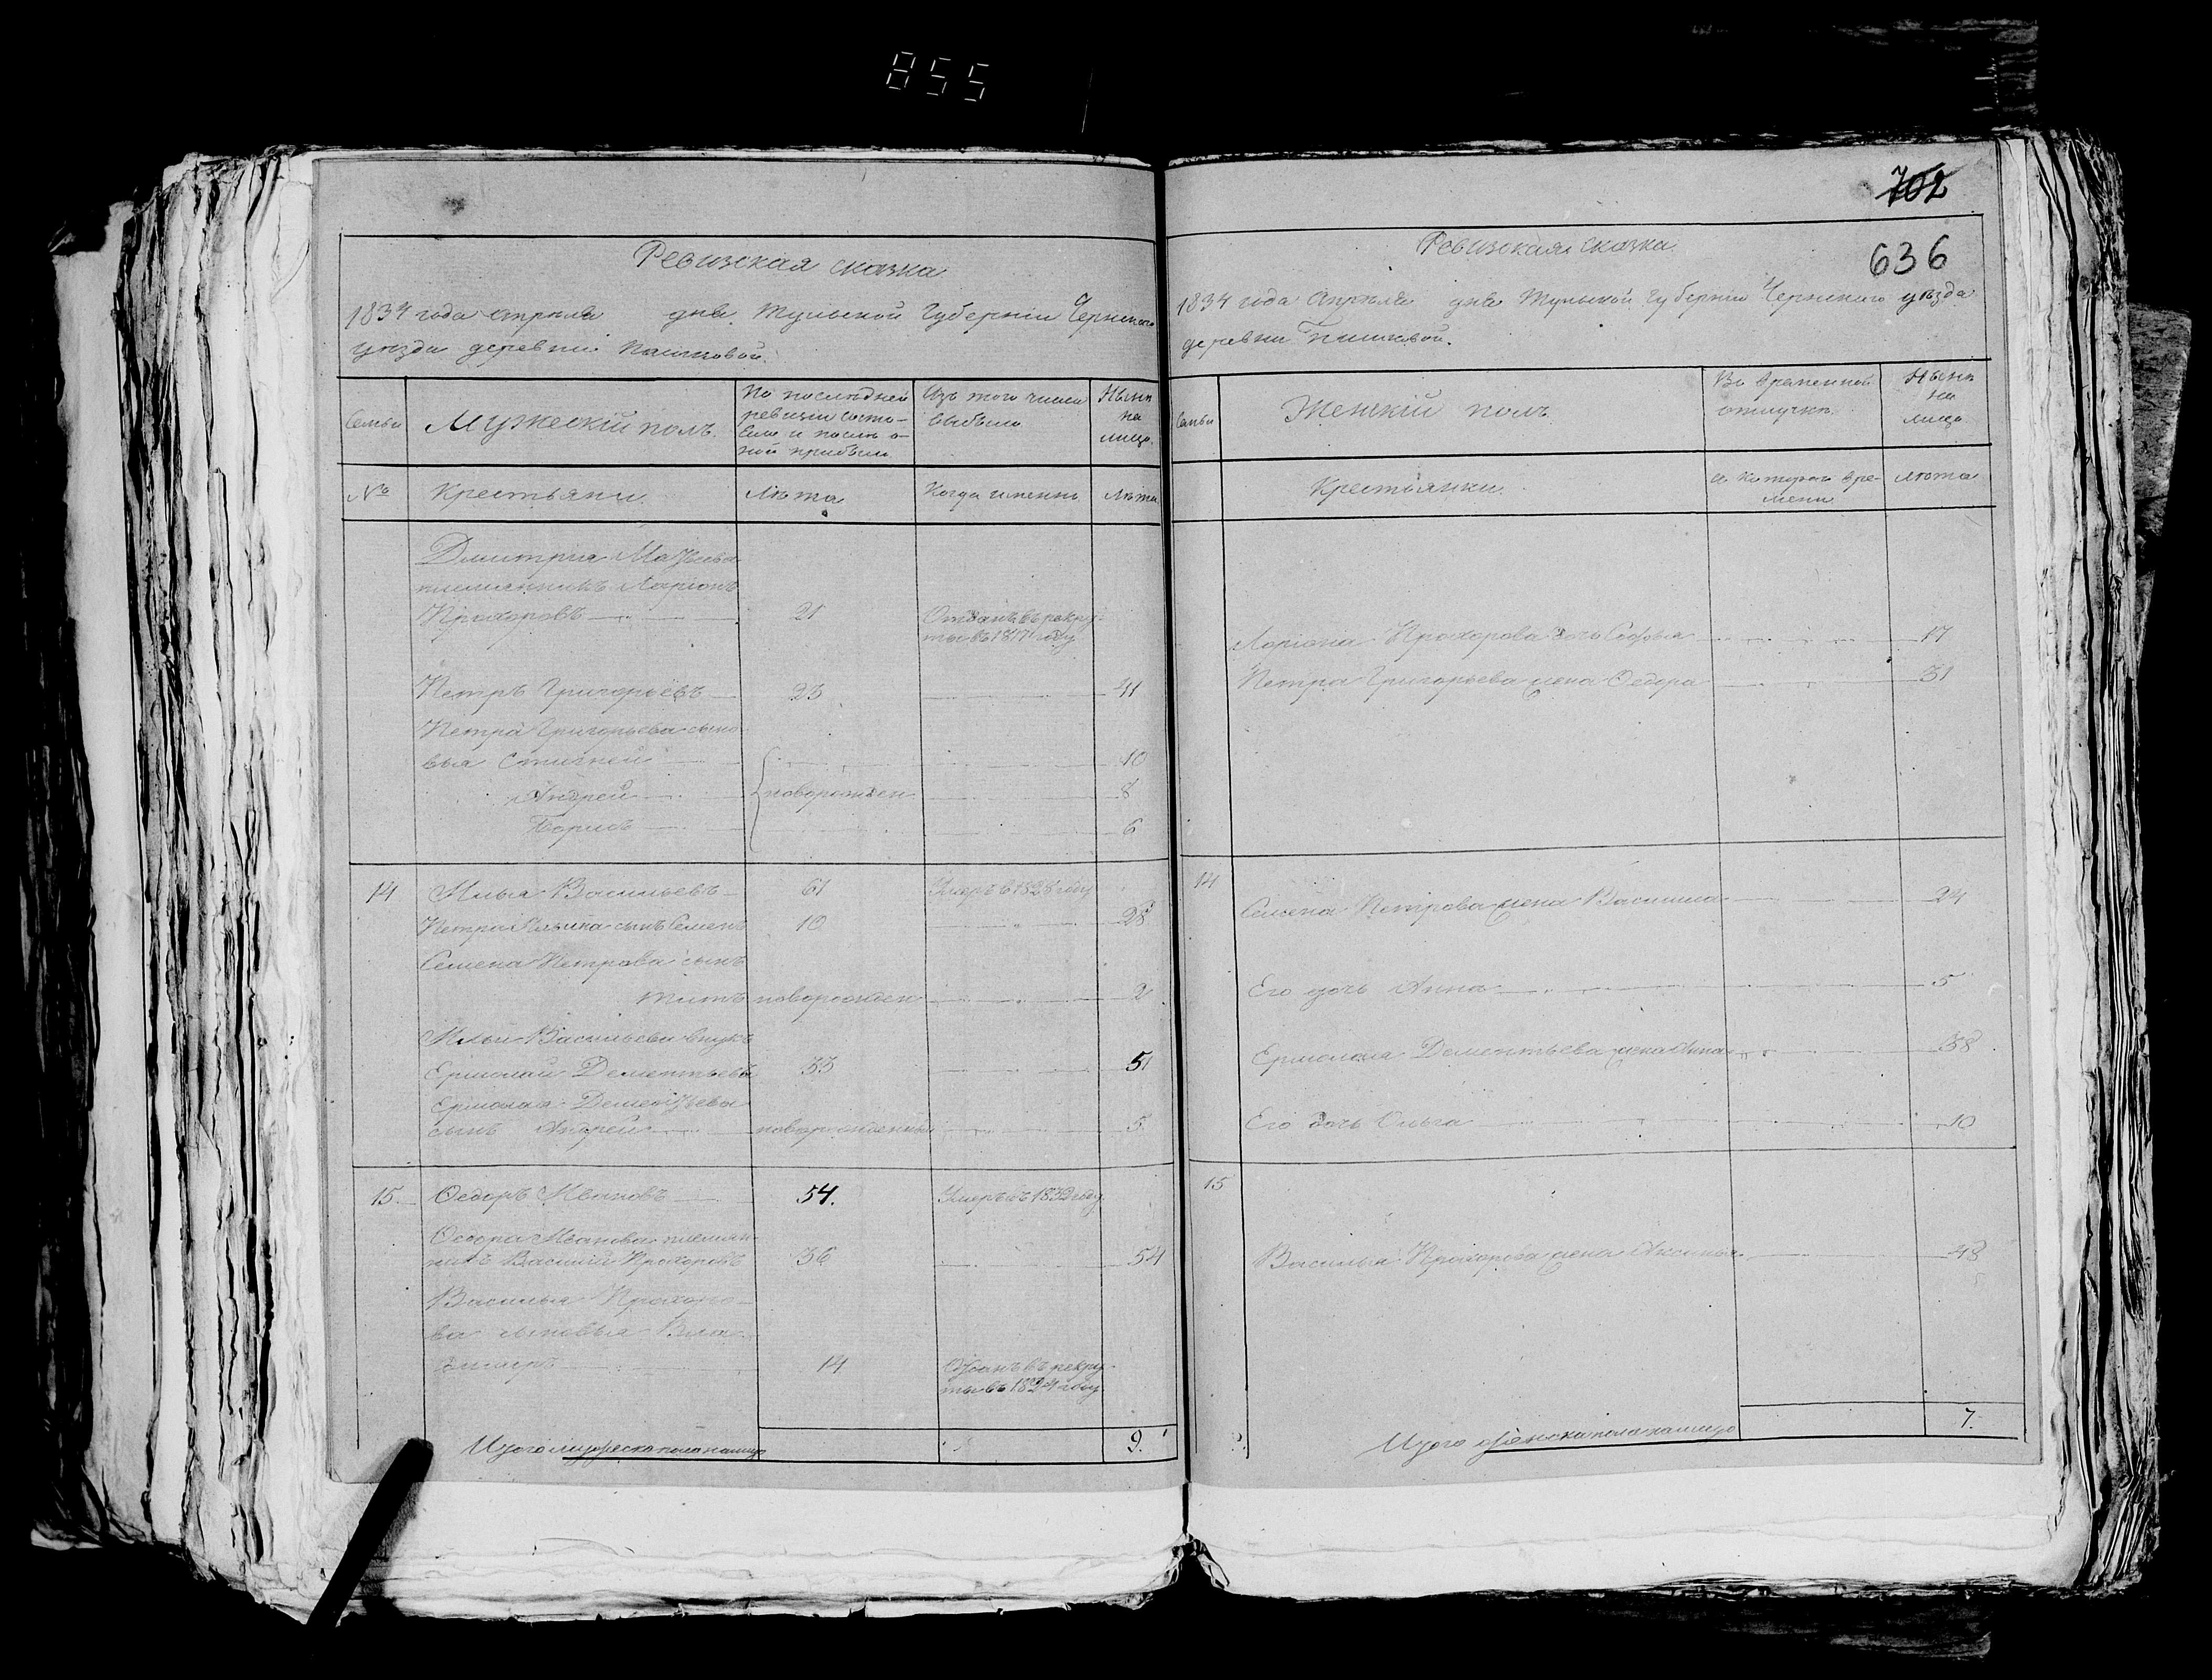 855
Ревизская сказка
1834 года апреля дня Тульской Губернiи Чернскаго
уезда деревни Пашковой.
Семьи
Мужескiй полъ.
По последней
ревизiи состо-
яло и после о-
ной прибыло
Изъ того числа
выбыло
Ныне
на
лицо.
№
Крестьяни
Лета
Когда именно
Лета
Дмитрия
племянникъ Ларiонъ
Прохоровъ 21 Отданъ въ рекру-
ты въ 181 году
Петръ Григорьевъ 23 41
Петра Григорьева сыно
вья 10
Андрей новорожден 8
Борисъ 6
14 Илья Васильевъ 61 Умеръ в 1828 году
Петра Ильина сынъ Семенъ 10 28
Семена Петрова сынъ
Титъ новорожден 2
Ильи Васильева внукъ
Ермолай Дементьевъ 33 51
Ермолая Дементьева
сынъ Андрей новорожденный 5
15. Ѳедоръ Ивановъ 54. Умеръ въ 1832 году
Ѳедора Иванова племян
никъ Василiй Прохоровъ 36 54
Василья Прохоро-
ва сыновья Вла-
димiръ 14 Отданъ въ рекру-
ты въ 1824 году
Итого мужеска пола налицо 9.
702
Ревизская сказка
636
1834 года Апреля дня Тульской Губернiи Чернскаго уезда
деревни Пашковой.
Семьи
Женскiй полъ
Во временной
отлучке.
Ныне
на
лицо
Крестьянки
съ котораго вре-
мени
лета
Ларiона Прохорова дочь Софья 17
Петра Григорьева жена Ѳедора 31
14
Семена Петрова жена Василиса 24
Его дочь Анна 5
Ермолая Дементьева жена Анна 38
Его дочь Ольга 10
15
Василья Прохорова жена Аксинья 48
Итого женска пола налицо 7.